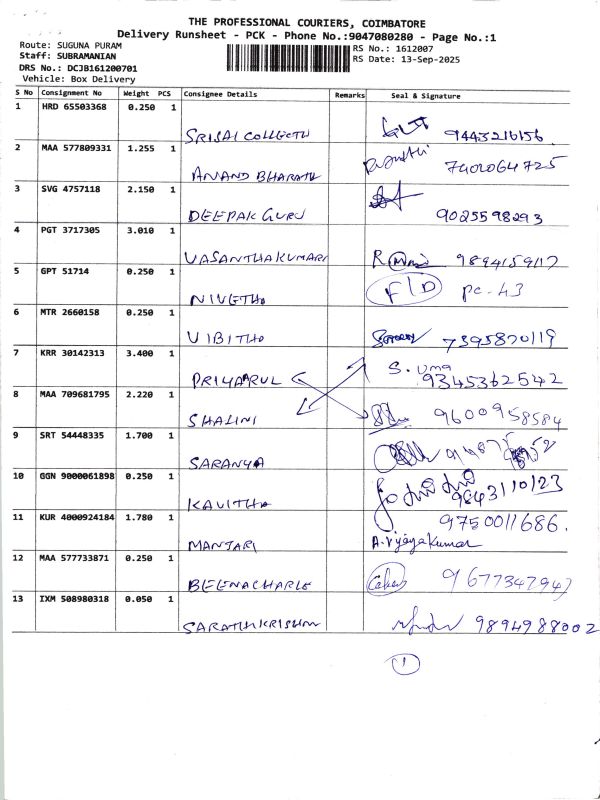 THE PROFESSIONAL COURIERS, COIMBATORE
Delivery Runsheet - PCK - Phone No.:9047080280 - Page No.:1
Route: SUGUNA PURAM
Staff: SUBRAMANIAN
DRS No.: DCJB161200701
Vehicle: Box Delivery
RS No.: 1612007
RS Date: 13-Sep-2025
S No Consignment No Weight PCS Consignee Details Remarks Seal & Signature
1 HRD 65503368 0.250 1
SRISAI COLLECTN 9443216156
2 MAA 577809331 1.255 1
ANAND BHARATH 7402064725
3 SVG 4757118 2.150 1
DEEPAK GURU 9025598293
4 PGT 3717305 3.010 1
VASANTHAKUMARI 9894159117
5 GPT 51714 0.250 1
NIVETHA F/D PC-43
6 MTR 2660158 0.250 1
VIBITHA 7395870119
7 KRR 30142313 3.400 1
PRIYAARUL S. Uma 9345362542
8 MAA 709681795 2.220 1
SHALINI 9600958584
9 SRT 54448335 1.700 1
SARANYA
10 GGN 9000061898 0.250 1
KAVITHA 9843110123
11 KUR 4000924184 1.780 1
MANJARI 9750011686.
A.Vijayakumar
12 MAA 577733871 0.250 1
BEENACHARLE 9677347947
13 IXM 508980318 0.050 1
SARATHKRISHN 9894988002
1